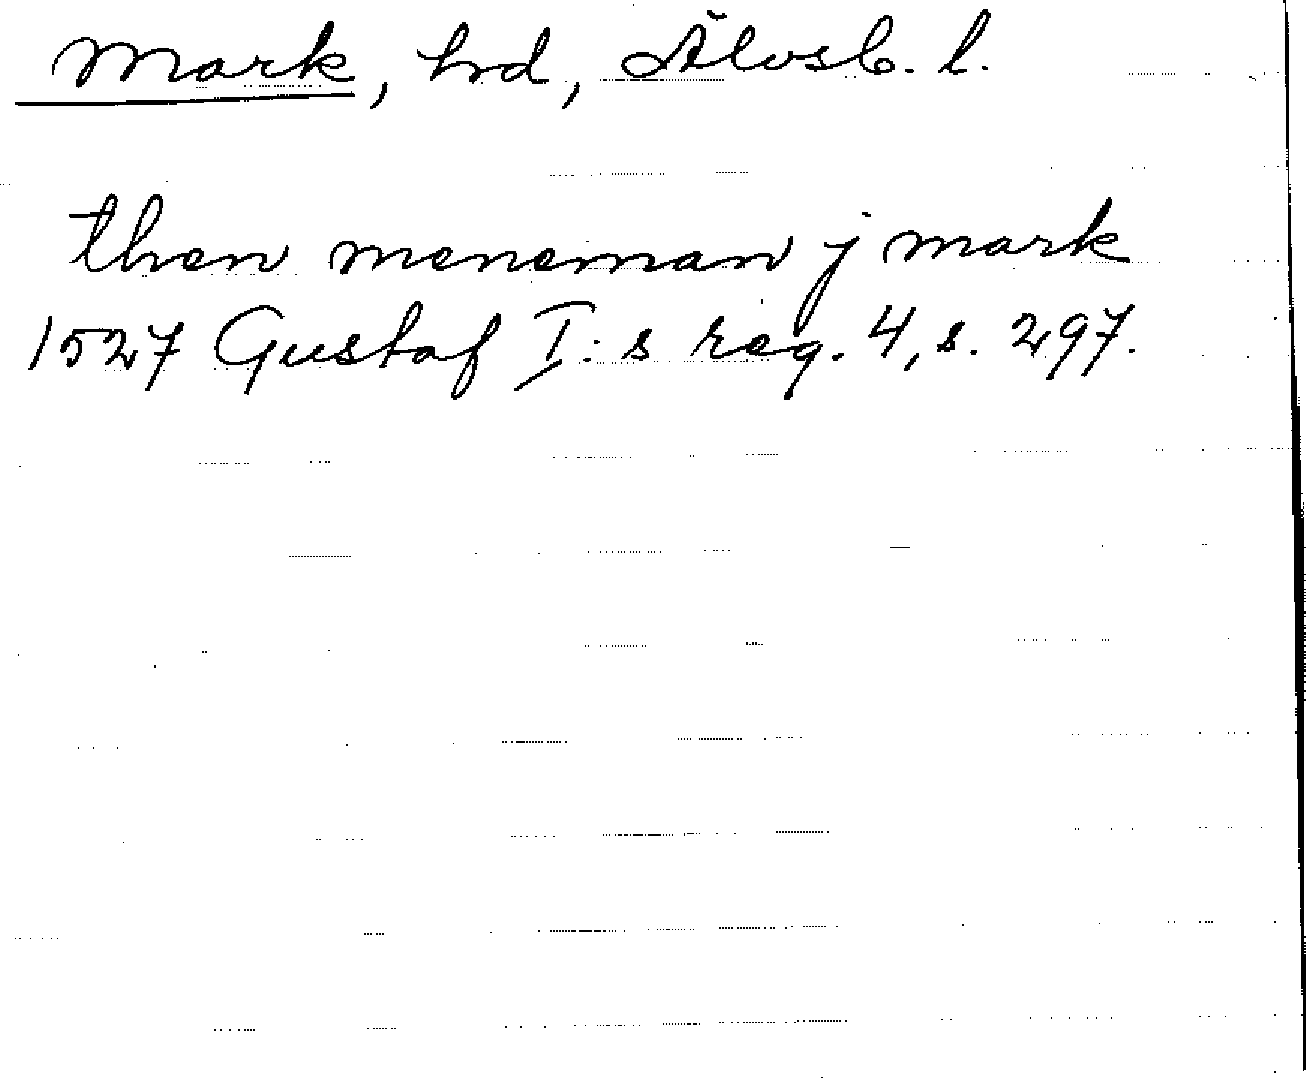 Mark, hrd, Älvsb. l.
then meneman j mark
1527 Gustaf I:s reg. 4, s. 297.